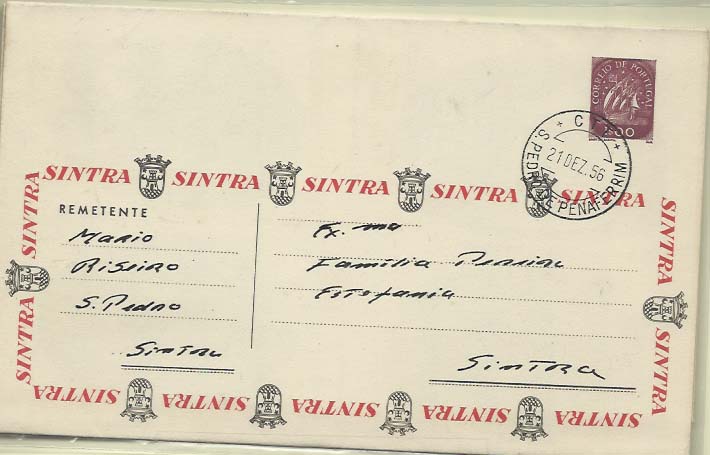 CORREIO DE PORTUGAL
1$00
C T T
21 DEZ. 56
S. PEDRO DE PENAFERRIM
SINTRA SINTRA SINTRA SINTRA SINTRA
REMETENTE
Mario
Ribeiro
S. Pedro
Sintra
Ex. ma
Família Pereira
Estefania
Sintra
SINTRA SINTRA
SINTRA SINTRA
SINTRA SINTRA SINTRA SINTRA SINTRA